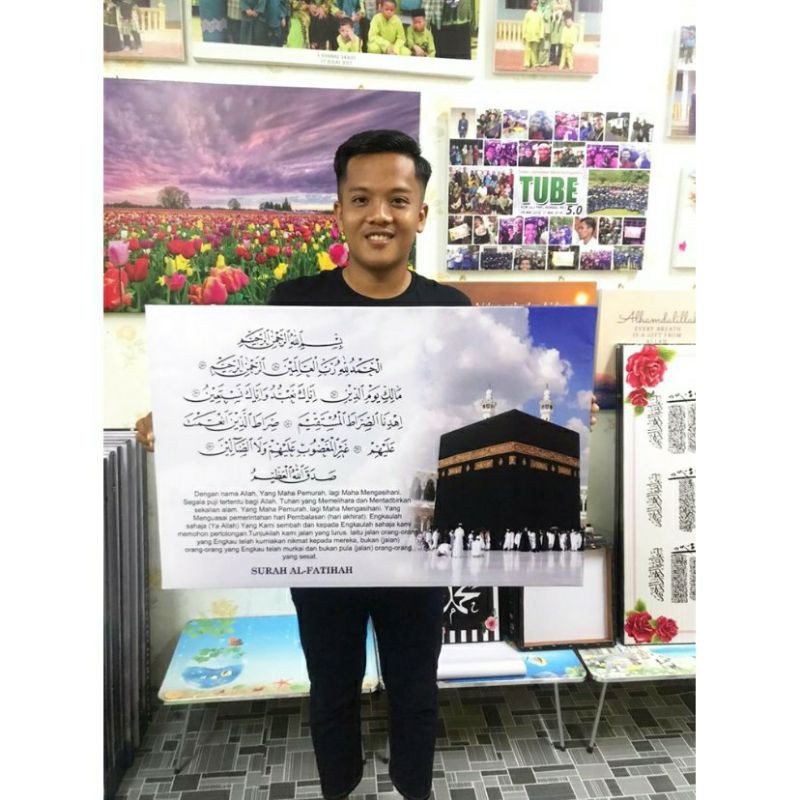 TUBE
5.0
Alhamdalillah
EVERY BREATH
IS A GIFT FROM
ALLAH
بِسْمِ اللهِ الرَّحْمٰنِ الرَّحِيْمِ
اَلْحَمْدُ لِلّٰهِ رَبِّ الْعَالَمِيْنَ ۞ اَلرَّحْمٰنِ الرَّحِيْمِ ۞
مَالِكِ يَوْمِ الدِّيْنِ ۞ اِيَّاكَ نَعْبُدُ وَاِيَّاكَ نَسْتَعِيْنُ ۞
اِهْدِنَا الصِّرَاطَ الْمُسْتَقِيْمَ ۞ صِرَاطَ الَّذِيْنَ اَنْعَمْتَ
عَلَيْهِمْ ۞ غَيْرِ الْمَغْضُوْبِ عَلَيْهِمْ وَلَا الضَّالِّيْنَ ۞
صَدَقَ اللهُ الْعَظِيْمُ
Dengan nama Allah, Yang Maha Pemurah, lagi Maha Mengasihani.
Segala puji tertentu bagi Allah, Tuhan yang Memelihara dan Mentadbirkan
sekalian alam. Yang Maha Pemurah, lagi Maha Mengasihani. Yang
Menguasai pemerintahan hari Pembalasan (hari akhirat). Engkaulah
sahaja (Ya Allah) Yang Kami sembah dan kepada Engkaulah sahaja kami
memohon pertolongan.Tunjukilah kami jalan yang lurus. Iaitu jalan orang-orang
yang Engkau telah kurniakan nikmat kepada mereka, bukan (jalan)
orang-orang yang Engkau telah murkai dan bukan pula (jalan) orang-orang
yang sesat.
SURAH AL-FATIHAH
محمد